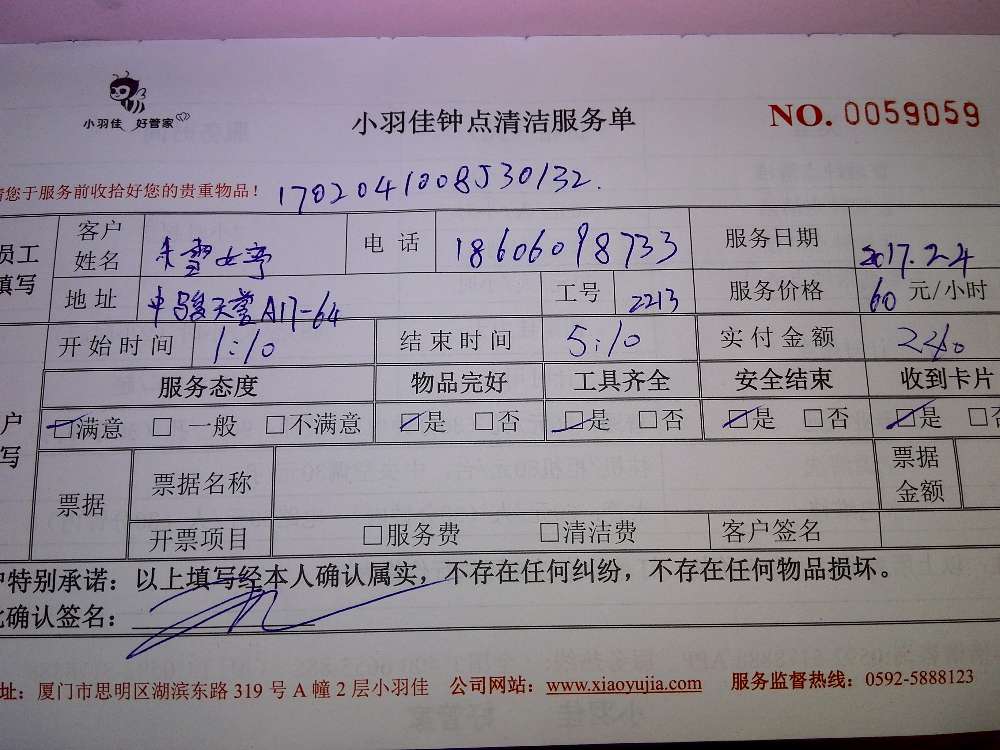 小羽佳 好管家
小羽佳钟点清洁服务单
NO. 0059059
您于服务前收拾好您的贵重物品！ 1702041008530132.
员工填写 客户姓名 电话 18606098733 服务日期 2017.2.4
地址 A17-64 工号 2213 服务价格 60 元/小时
开始时间 1:10 结束时间 5:10 实付金额 240
服务态度 物品完好 工具齐全 安全结束 收到卡片
户写 □满意 □一般 □不满意 □是 □否 □是 □否 □是 □否 □是 □否
票据 票据名称 票据金额
开票项目 □服务费 □清洁费 客户签名
户特别承诺：以上填写经本人确认属实，不存在任何纠纷，不存在任何物品损坏。
此确认签名：
址：厦门市思明区湖滨东路 319 号 A 幢 2 层小羽佳 公司网站：www.xiaoyujia.com 服务监督热线：0592-5888123